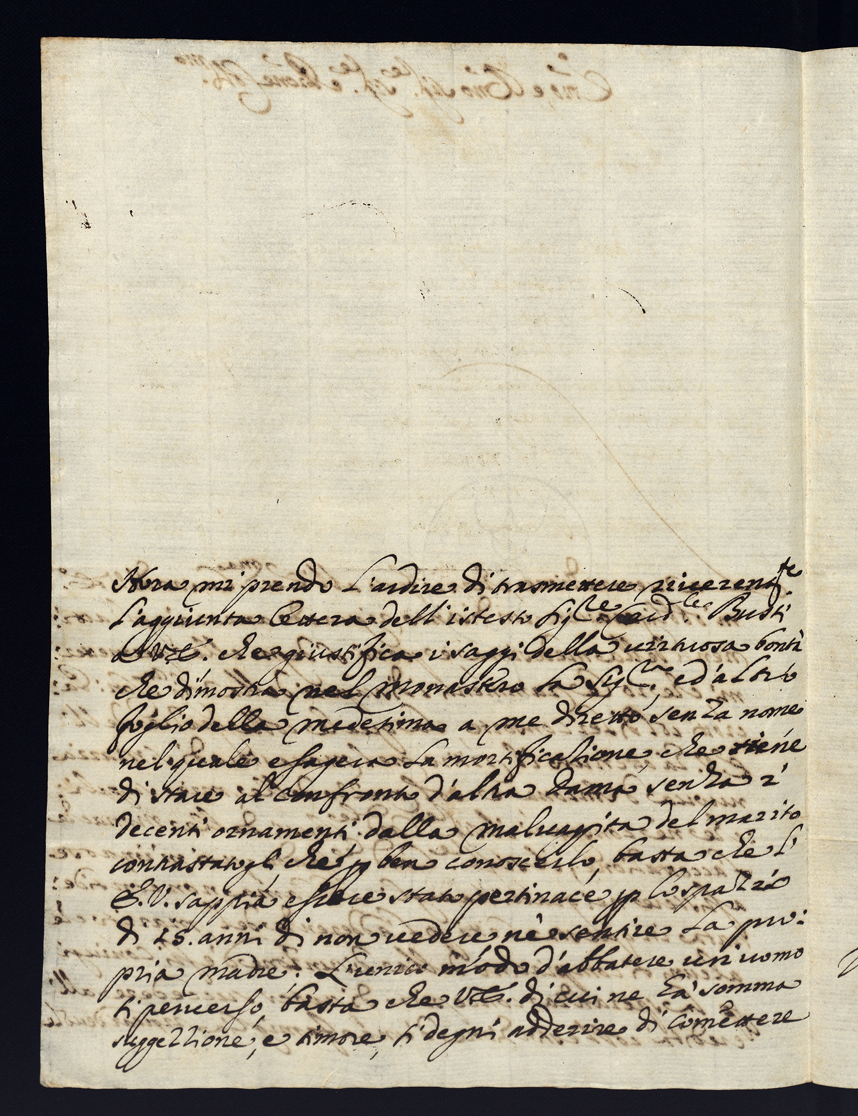 Hora mi prendo l'ardire di trasmettere riverent.te
l'aggiunta lettera dell'istesso Sig.re Busti
a V.E. che giustifica i saggi della virtuosa bontà
che dimostra nel Monastero la Sig.ra ed altro
foglio della medesima a me diretto senza nome
nel quale esagera la mortificatione, che tiene
di stare al confronto d'altra Dama, senza i
decenti ornamenti dalla malvagità del marito
contrastatigli, che p ben conoscerlo, basta che l'
E.V. sappia essere stato pertinace p lo spazio
di 18. anni di non vedere nè sentire la pro:
pria madre. L'unico modo d'abbatere un uomo
sì perverso, basta che V.E. di cui ne hà somma
suggezzione, e timore, si degni adderire di comettere